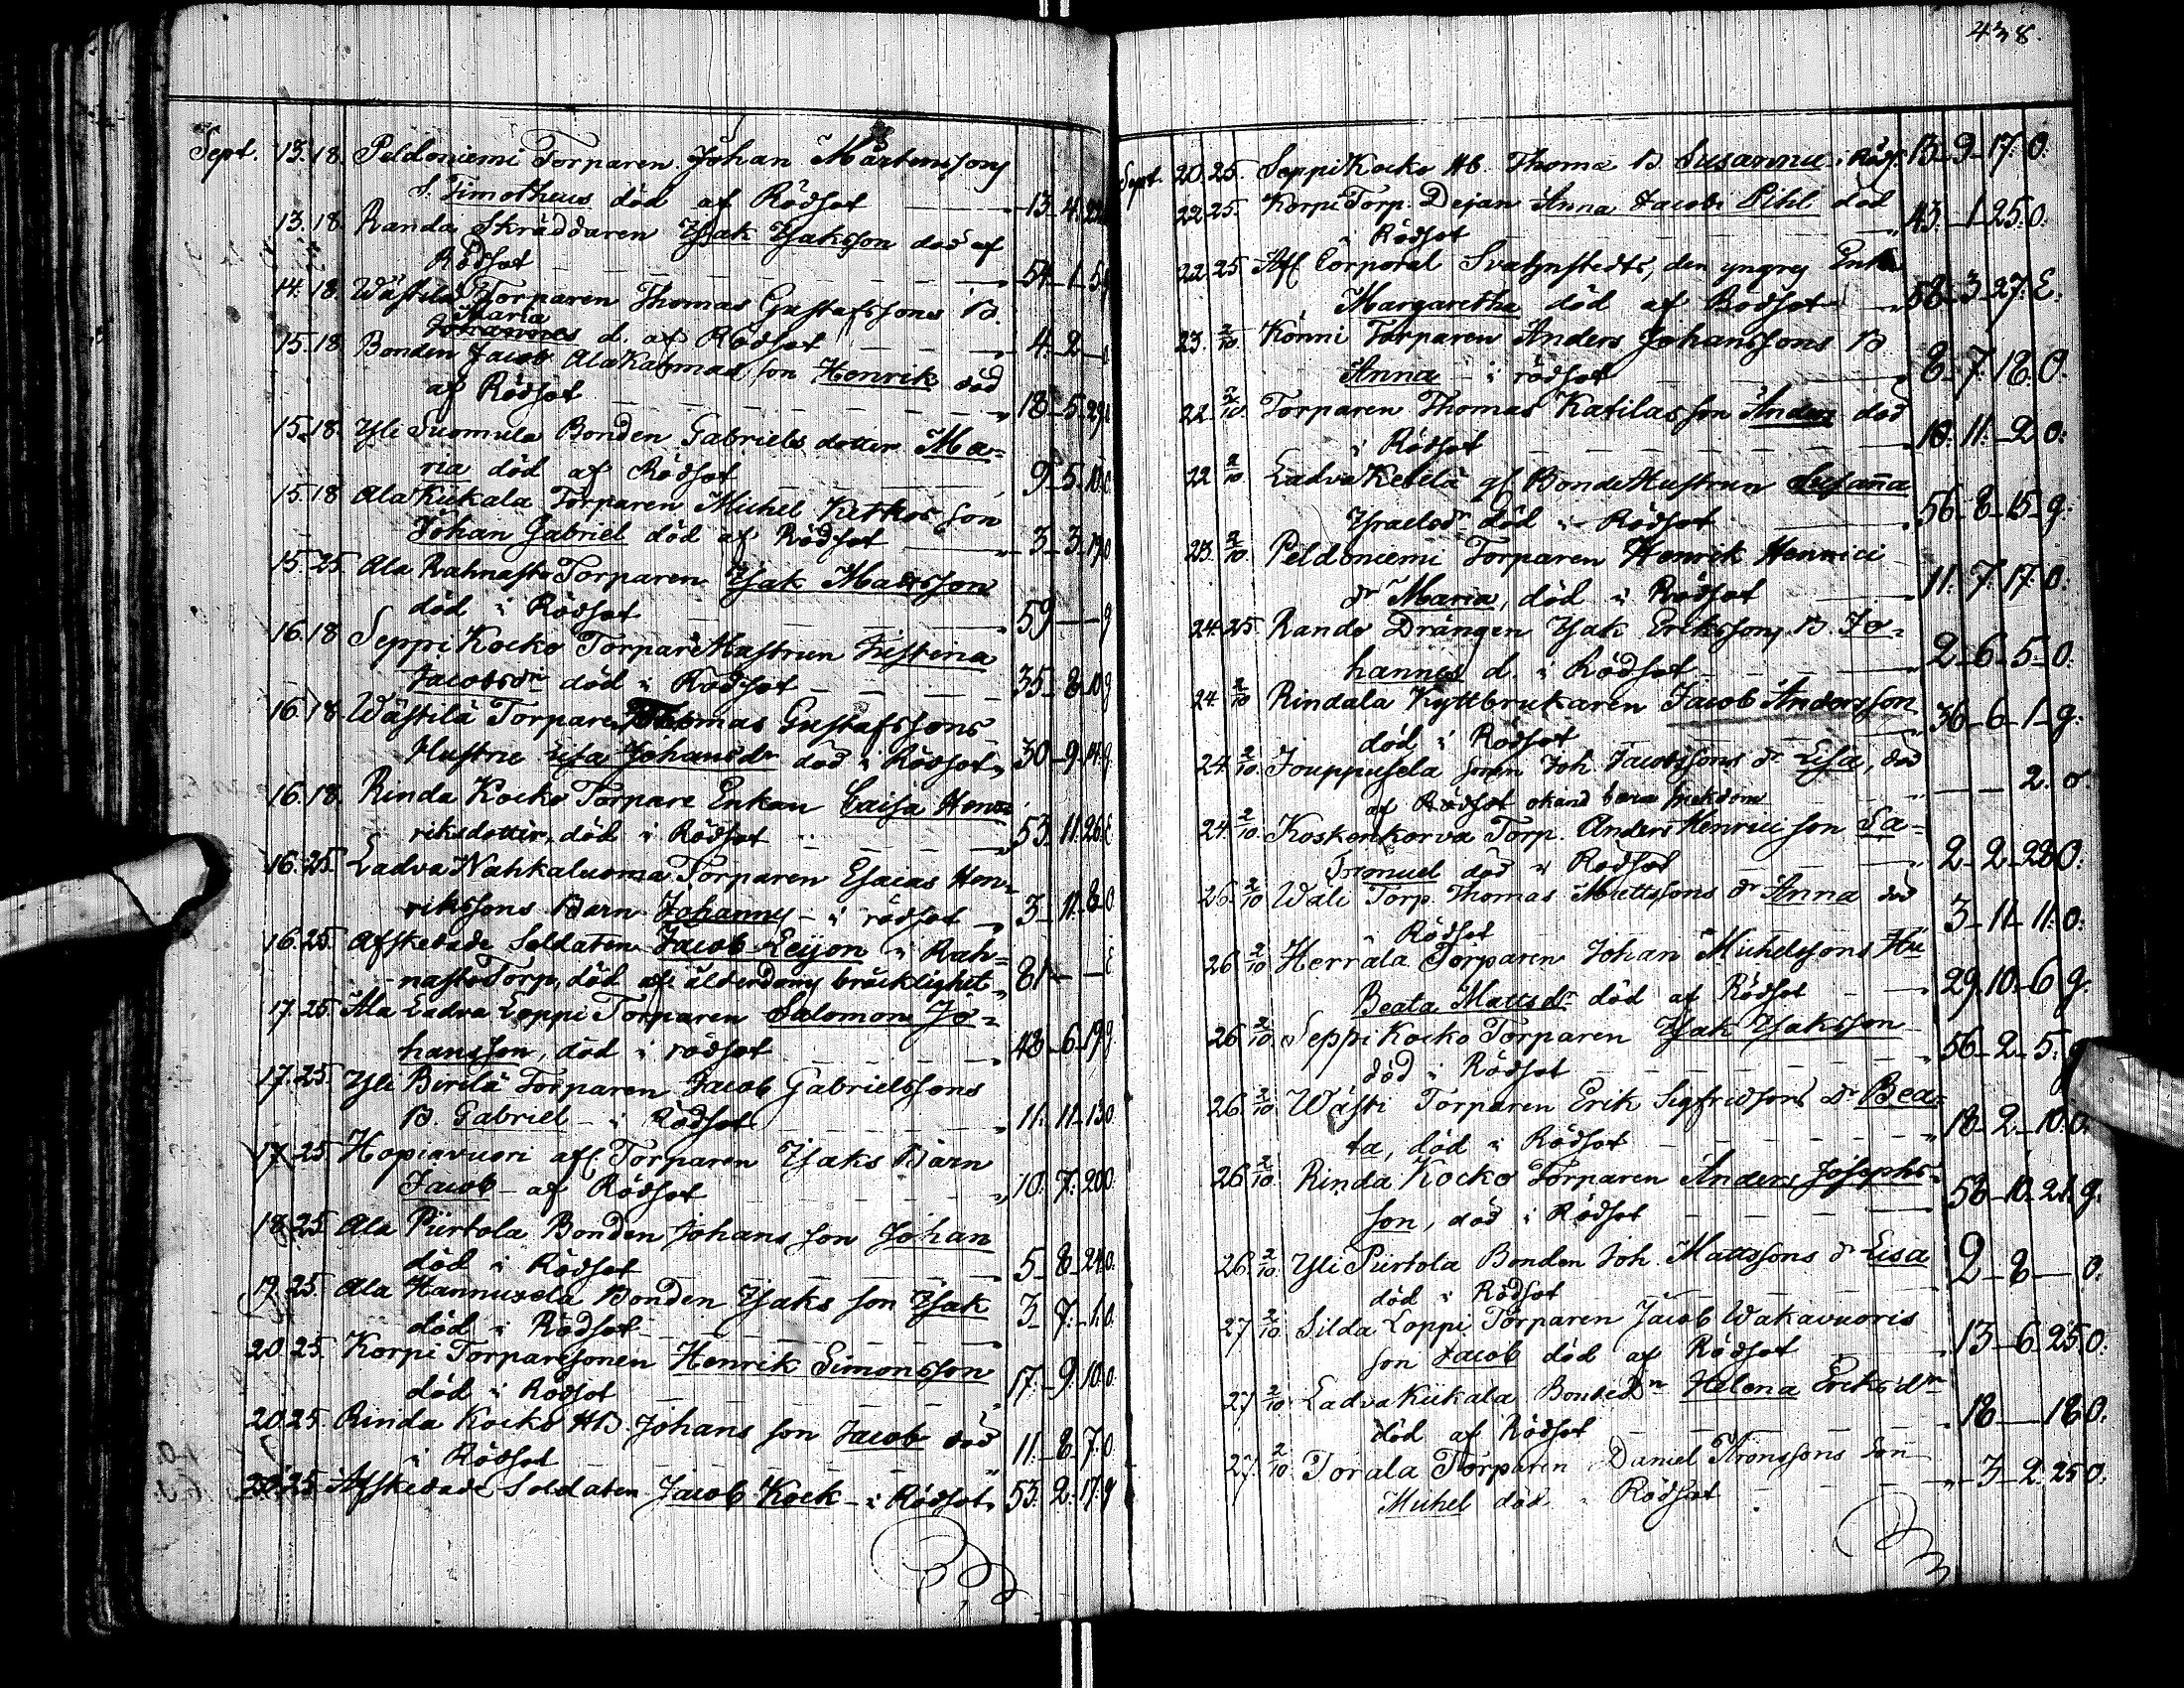 Sept. 13. 18. Peldoniemi Torparen Johan Mårtenssons
S. Timotheus död af Rödsot 13. 4.
13. 18. Randa Skräddaren Isak Isaksson död af
Rödsot 54. 1. 5
14. 18. Wästilä Torparen Thomas Gustafssons B.
Maria
Johannes d. af Rödsot 4. 2
15. 18. Bonden Jacob Alakalmas son Henrik död
af Rödsot 18. 5. 29
15. 18. Yli Suomula Bonden Gabriels dotter Ma=
ria död af Rödsot 9. 5. 10. o
15. 18 Ala Kiikala Torparen Michel Ketkos son
Johan Gabriel död af Rödsot 3. 3. 19. o
15. 25. Ala Rahnasto Torparen Isak Madsson
död i Rödsot 59 — g
16. 18 Seppi Kocko Torpare Hustrun
Jacobsdr död i Rödsot 35. 8. 10 g
16. 18. Wästilä Torparen Thomas Gustafssons
Hustru Lisa Johansdr död i Rödsot 30. 9. 14. g.
16. 18. Rinda Kocko Torpare Enkan Caisa Hen=
riksdotter, död i Rödsot 53. 11. 26. E
16. 25. Ladva Nahkaluoma Torparen Esaias Hen=
rikssons Barn Johannes — i rödsot 3. 11. 8. o
16. 25. Afskedade Soldaten Jacob Leijon i Rah=
nasto Torp, död af ålderdoms bräcklighet 81 — E
17. 25. Ala Ladva Loppi Torparen Salomon Jo=
hansson, död i rödsot 48. 6. 19 g
17. 25. Yli Pirilä Torparen Jacob Gabrielssons
B. Gabriel — i Rödsot 11. 11. 13. o
17. 25 Hopiavuori afl. Torparen Isaks Barn
Jacob — af Rödsot 10. 7. 20. o
18. 25 Ala Piirtola Bonden Johans son Johan
död i Rödsot 5. 8. 24. o.
19. 25. Ala Hannuxela Bonden Isaks son Isak
död i Rödsot 3. 7. 1. o.
20. 25. Korpi Torparesonen Henrik Simonsson
död i Rödsot 17. 9. 10. o
20. 25. Rinda Kocko HB. Johans son Jacob död
i Rödsot 11. 8. 7. o
20. 25 Afskedade Soldaten Jacob Kock — i Rödsot 53. 2. 17. g
438.
Sept. 20. 25. Seppi Kocko Hb. Thoma B Susanna i Röds. 13. 9. 17. o.
22. 25. Korpi Torp. Dejan Anna Jacobi Pihl död
i Rödsot 43. 1. 25. o.
22. 25 Afl. Corporal Svahnstedts, den yngres Enka
Margaretha död af Rodsot 58. 3. 27. E.
23. 2/10 Könni Torparen Anders Johanssons B
Anna — i rödsot 8. 7. 18. o.
22. 2/10. Torparen Thomas Katilas son Anders död
i Rödsot 10. 11. 2 o.
22 2/10 Ladva Ketelä gl. Bonde Hustrun Susanna
Israelsdr död i Rödsot 56. 8. 15. g.
23. 2/10. Peldoniemi Torparen Henrik Henrici
dr Maria, död i Rödsot 11. 7. 17. o.
24. 25 Rando Drängen Isak Erikssons B. Jo=
hannes d. i Rödsot 2. 6. 5. o.
24. 2/10 Rindala Kyttbrukaren Jacob Andersson
död i Rödsot 36. 6. 1. g.
24. 2/10. Jouppusela Joh. Jacobssons dr Lisa, död
af Rödsot okänd barn sjukdom — 2. o.
24. 2/10. Koskenkorva Torp. Anders Henrici son Sa=
muel död i Rödsot 2. 2. 28. o.
26. 2/10 Wäli Torp. Thomas Mattssons dr Anna död
Rödsot 3. 11. 11. o.
26 2/10 Herrala Torparen Johan Michelssons Hu
Beata Mattsdr död af Rödsot 29. 10. 6 g.
26 2/10. Seppi Kocko Torparen Isak Isaksson
död i Rödsot 56. 2. 5. g
26. 2/10 Wästi Torparen Erik Sigfridsons dr Bea=
ta, död i Rödsot 18. 2. 10. o.
26 2/10. Rinda Kocko Torparen Anders Josephs=
son, död i Rödsot 58. 10. 21. g.
26. 2/10. Yli Piirtola Bonden Joh. Mattssons dr Lisa
död i Rödsot 2. 8. — o.
27 2/10. Silda Loppi Torparen Jacob Wakavuoris
son Jacob död af Rödsot 13. 6. 25. o.
27 2/10. Ladva Kiikala Bonde Dr Helena Eriksdr
död af Rödsot 18. — 18. o.
27. 2/10. Torala Torparen Daniel Thomssons Son
Michel död i Rödsot 3. 2. 25 o.